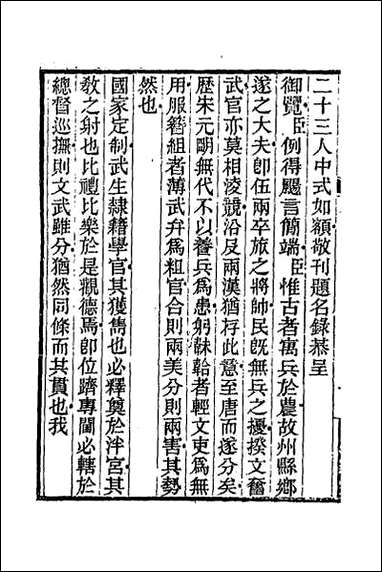 二十三人中式如額敬刊題名錄恭呈
御覽臣例得颺言簡端臣惟古者寓兵於農故州縣鄉
遂之大夫卽伍兩卒旅之將帥民旣無兵之擾揆文奮
武官亦莫相淩競沿及兩漢猶存此意至唐而遂分矣
歷宋元明無代不以養兵爲患躬韎韐者輕文吏爲無
用服簪組者薄武弁爲粗官合則兩美分則兩害其勢
然也
國家定制武生隸籍學官其獲雋也必釋奠於泮宮其
敎之射也比禮比樂於是觀德焉卽位躋專閫必轄於
總督巡撫則文武雖分猶然同條而其貫也我